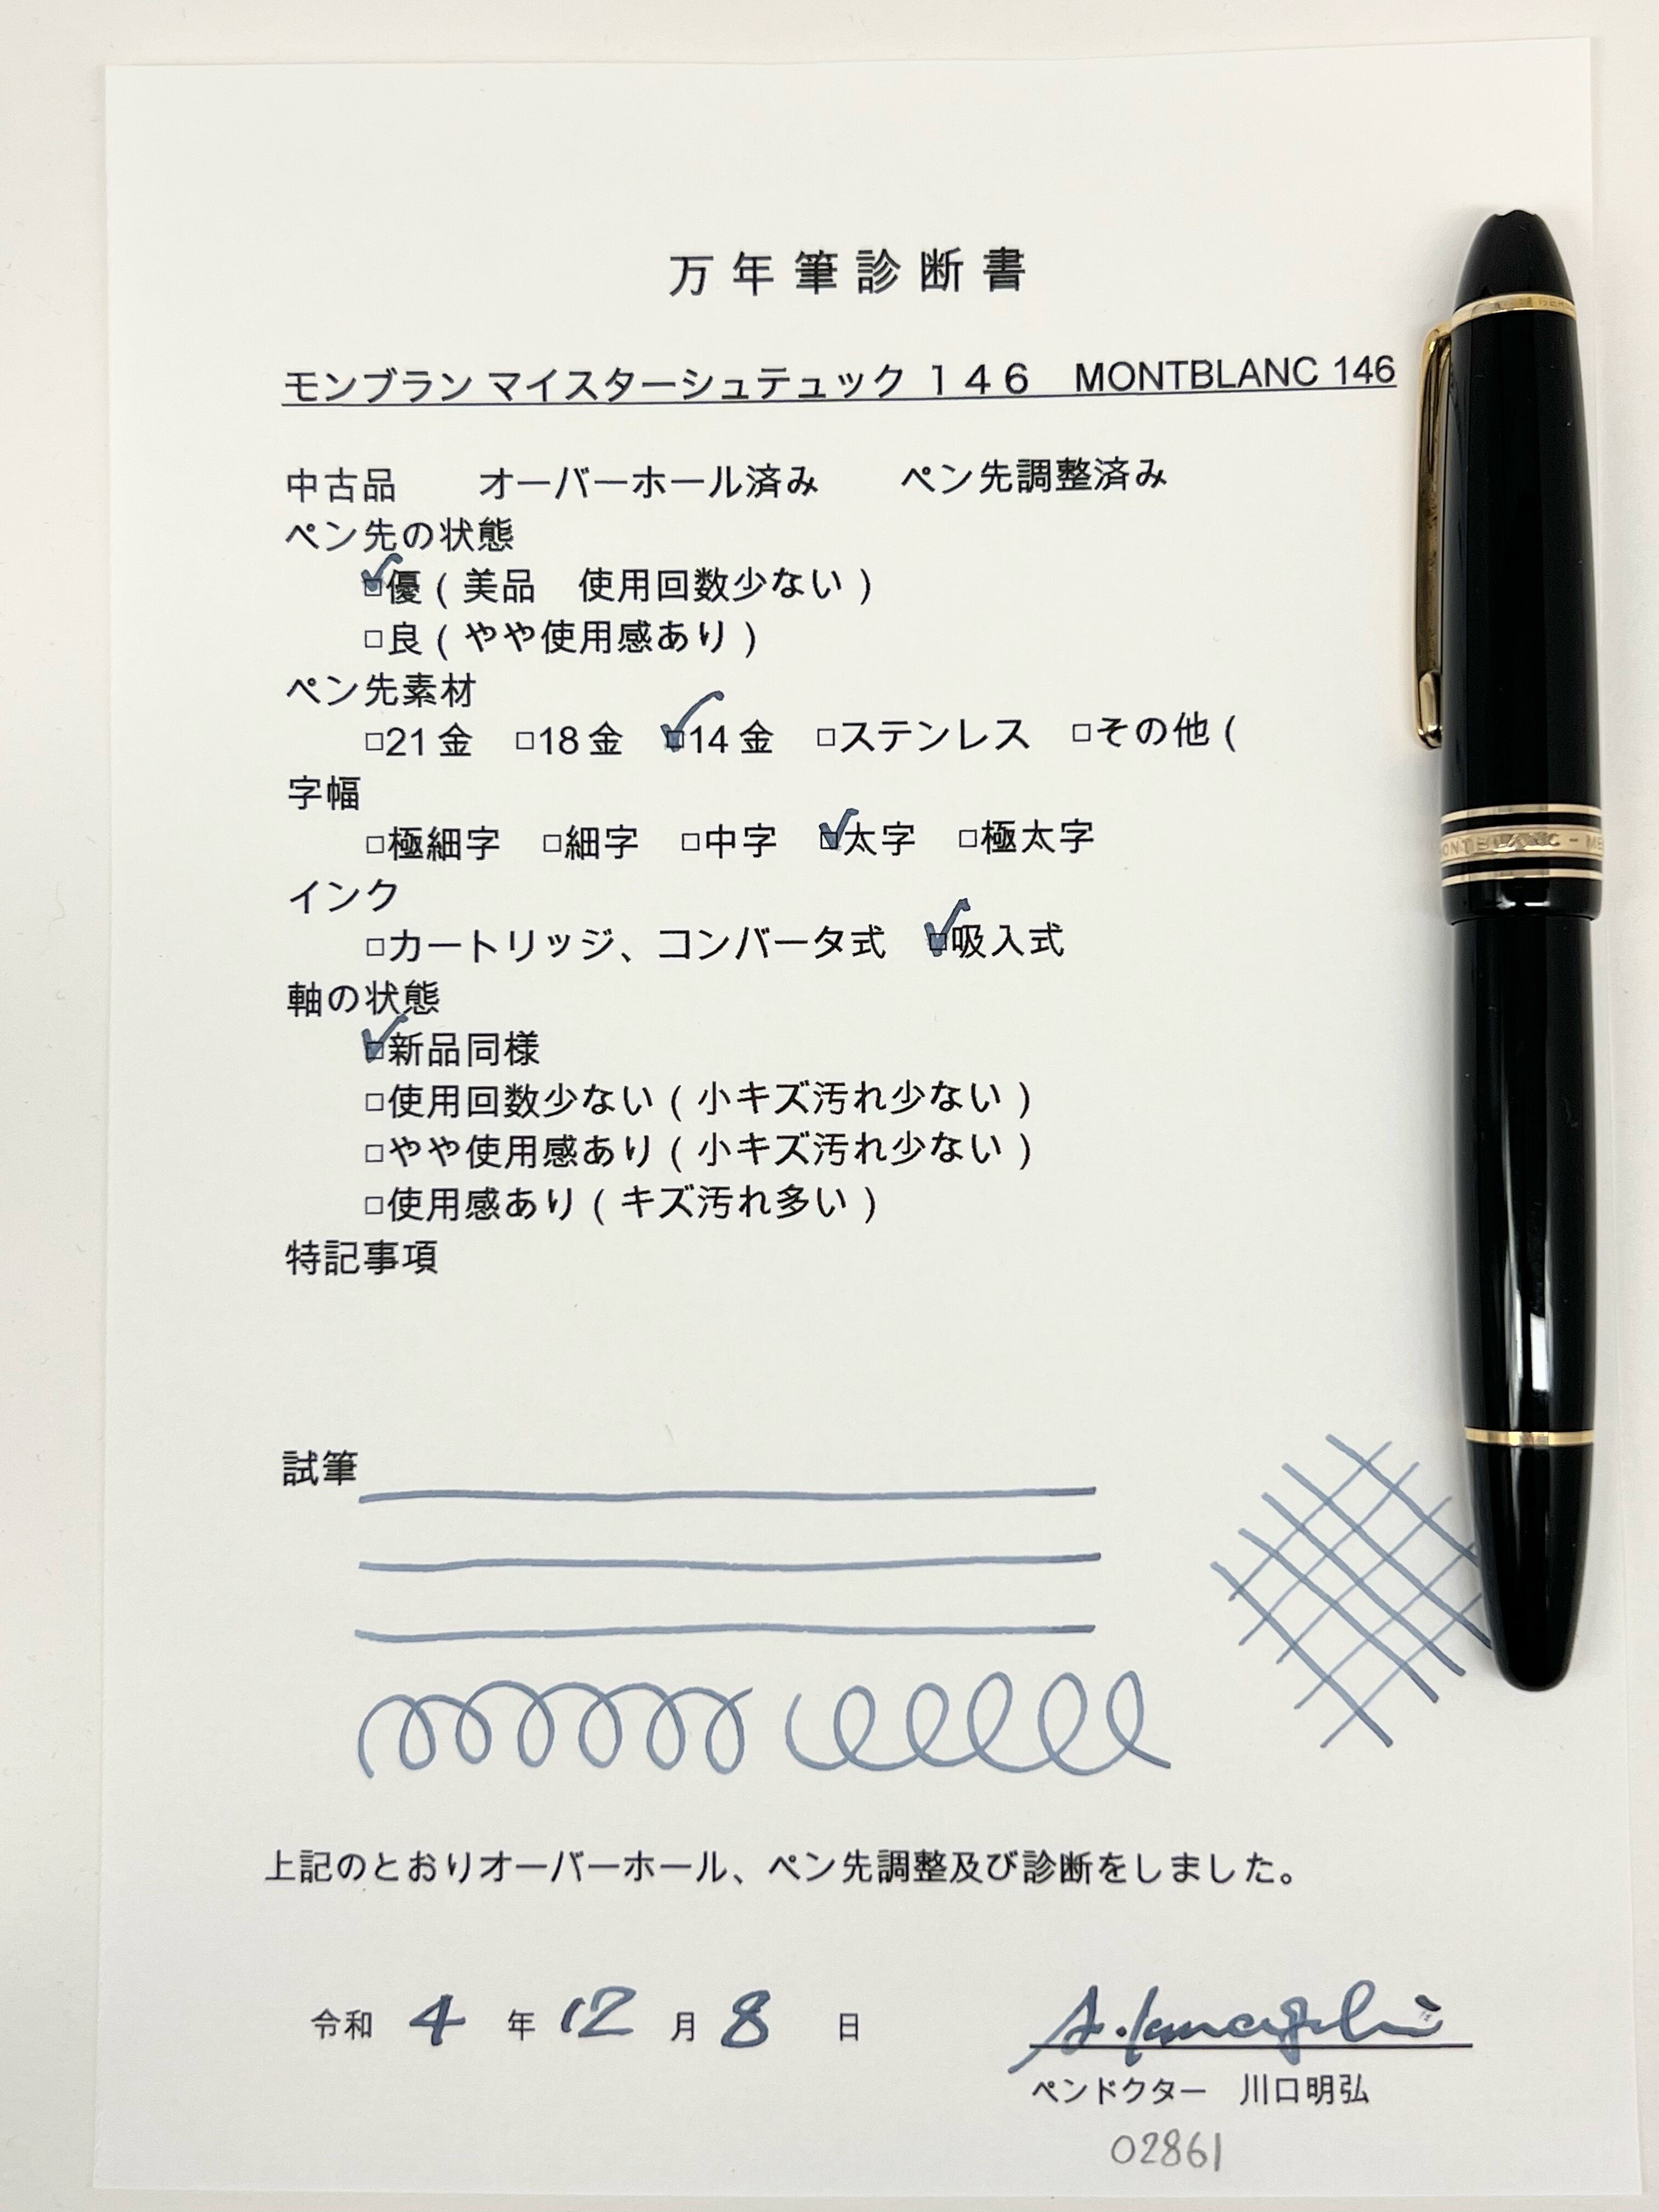 万年筆診断書
モンブラン マイスターシュテュック １４６　MONTBLANC 146
中古品　　オーバーホール済み　　ペン先調整済み
ペン先の状態
☑優（美品　使用回数少ない）
□良（やや使用感あり）
ペン先素材
□21金　□18金　☑14金　□ステンレス　□その他（
字幅
□極細字　□細字　□中字　☑太字　□極太字
インク
□カートリッジ、コンバータ式　☑吸入式
軸の状態
☑新品同様
□使用回数少ない（小キズ汚れ少ない）
□やや使用感あり（小キズ汚れ少ない）
□使用感あり（キズ汚れ多い）
特記事項
ONTBLANC - ME
試筆
上記のとおりオーバーホール、ペン先調整及び診断をしました。
令和 4 年 12 月 8 日
ペンドクター　川口明弘
02861